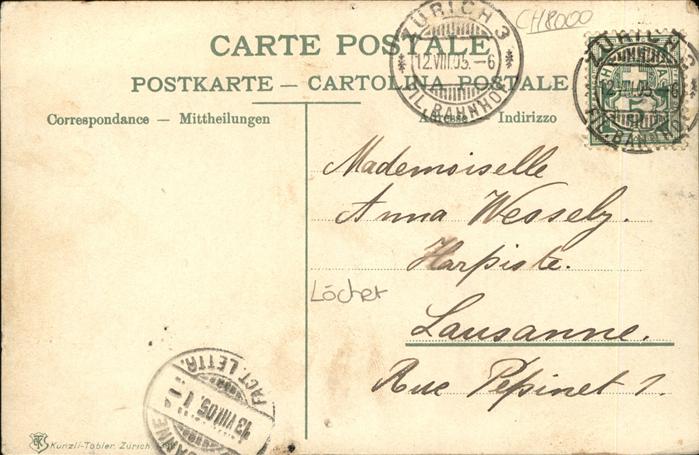 CH8000
CARTE POSTALE
POSTKARTE — CARTOLINA POSTALE
Correspondance — Mittheilungen
Adresse Indirizzo
ZÜRICH 3
12.VIII.05.–6
FIL. BAHNHOF
ZÜRICH 3
12.VIII.05.–6
FIL. BAHNHOF
Mademoiselle
Anna Wessely.
Harpiste.
Löcher
Lausanne.
Rue Pépinet 1.
FACT. LETTR.
13 VIII.05. 1
LAUSANNE
Künzli-Tobler, Zürich